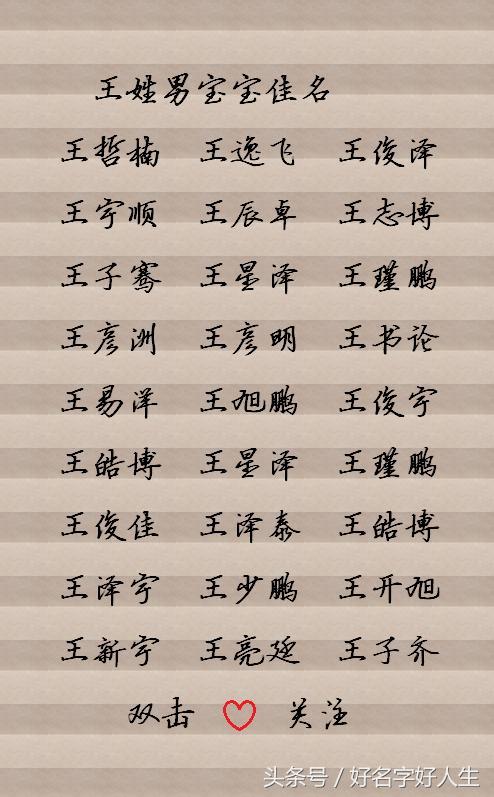 王姓男宝宝佳名
王哲楠 王逸飞 王俊泽
王宇顺 王辰卓 王志博
王子骞 王星泽 王瑾鹏
王彦洲 王彦明 王书论
王易洋 王旭鹏 王俊宇
王皓博 王星泽 王瑾鹏
王俊佳 王泽泰 王皓博
王泽宇 王少鹏 王开旭
王新宇 王亮延 王子齐
双击 关注
头条号／好名字好人生